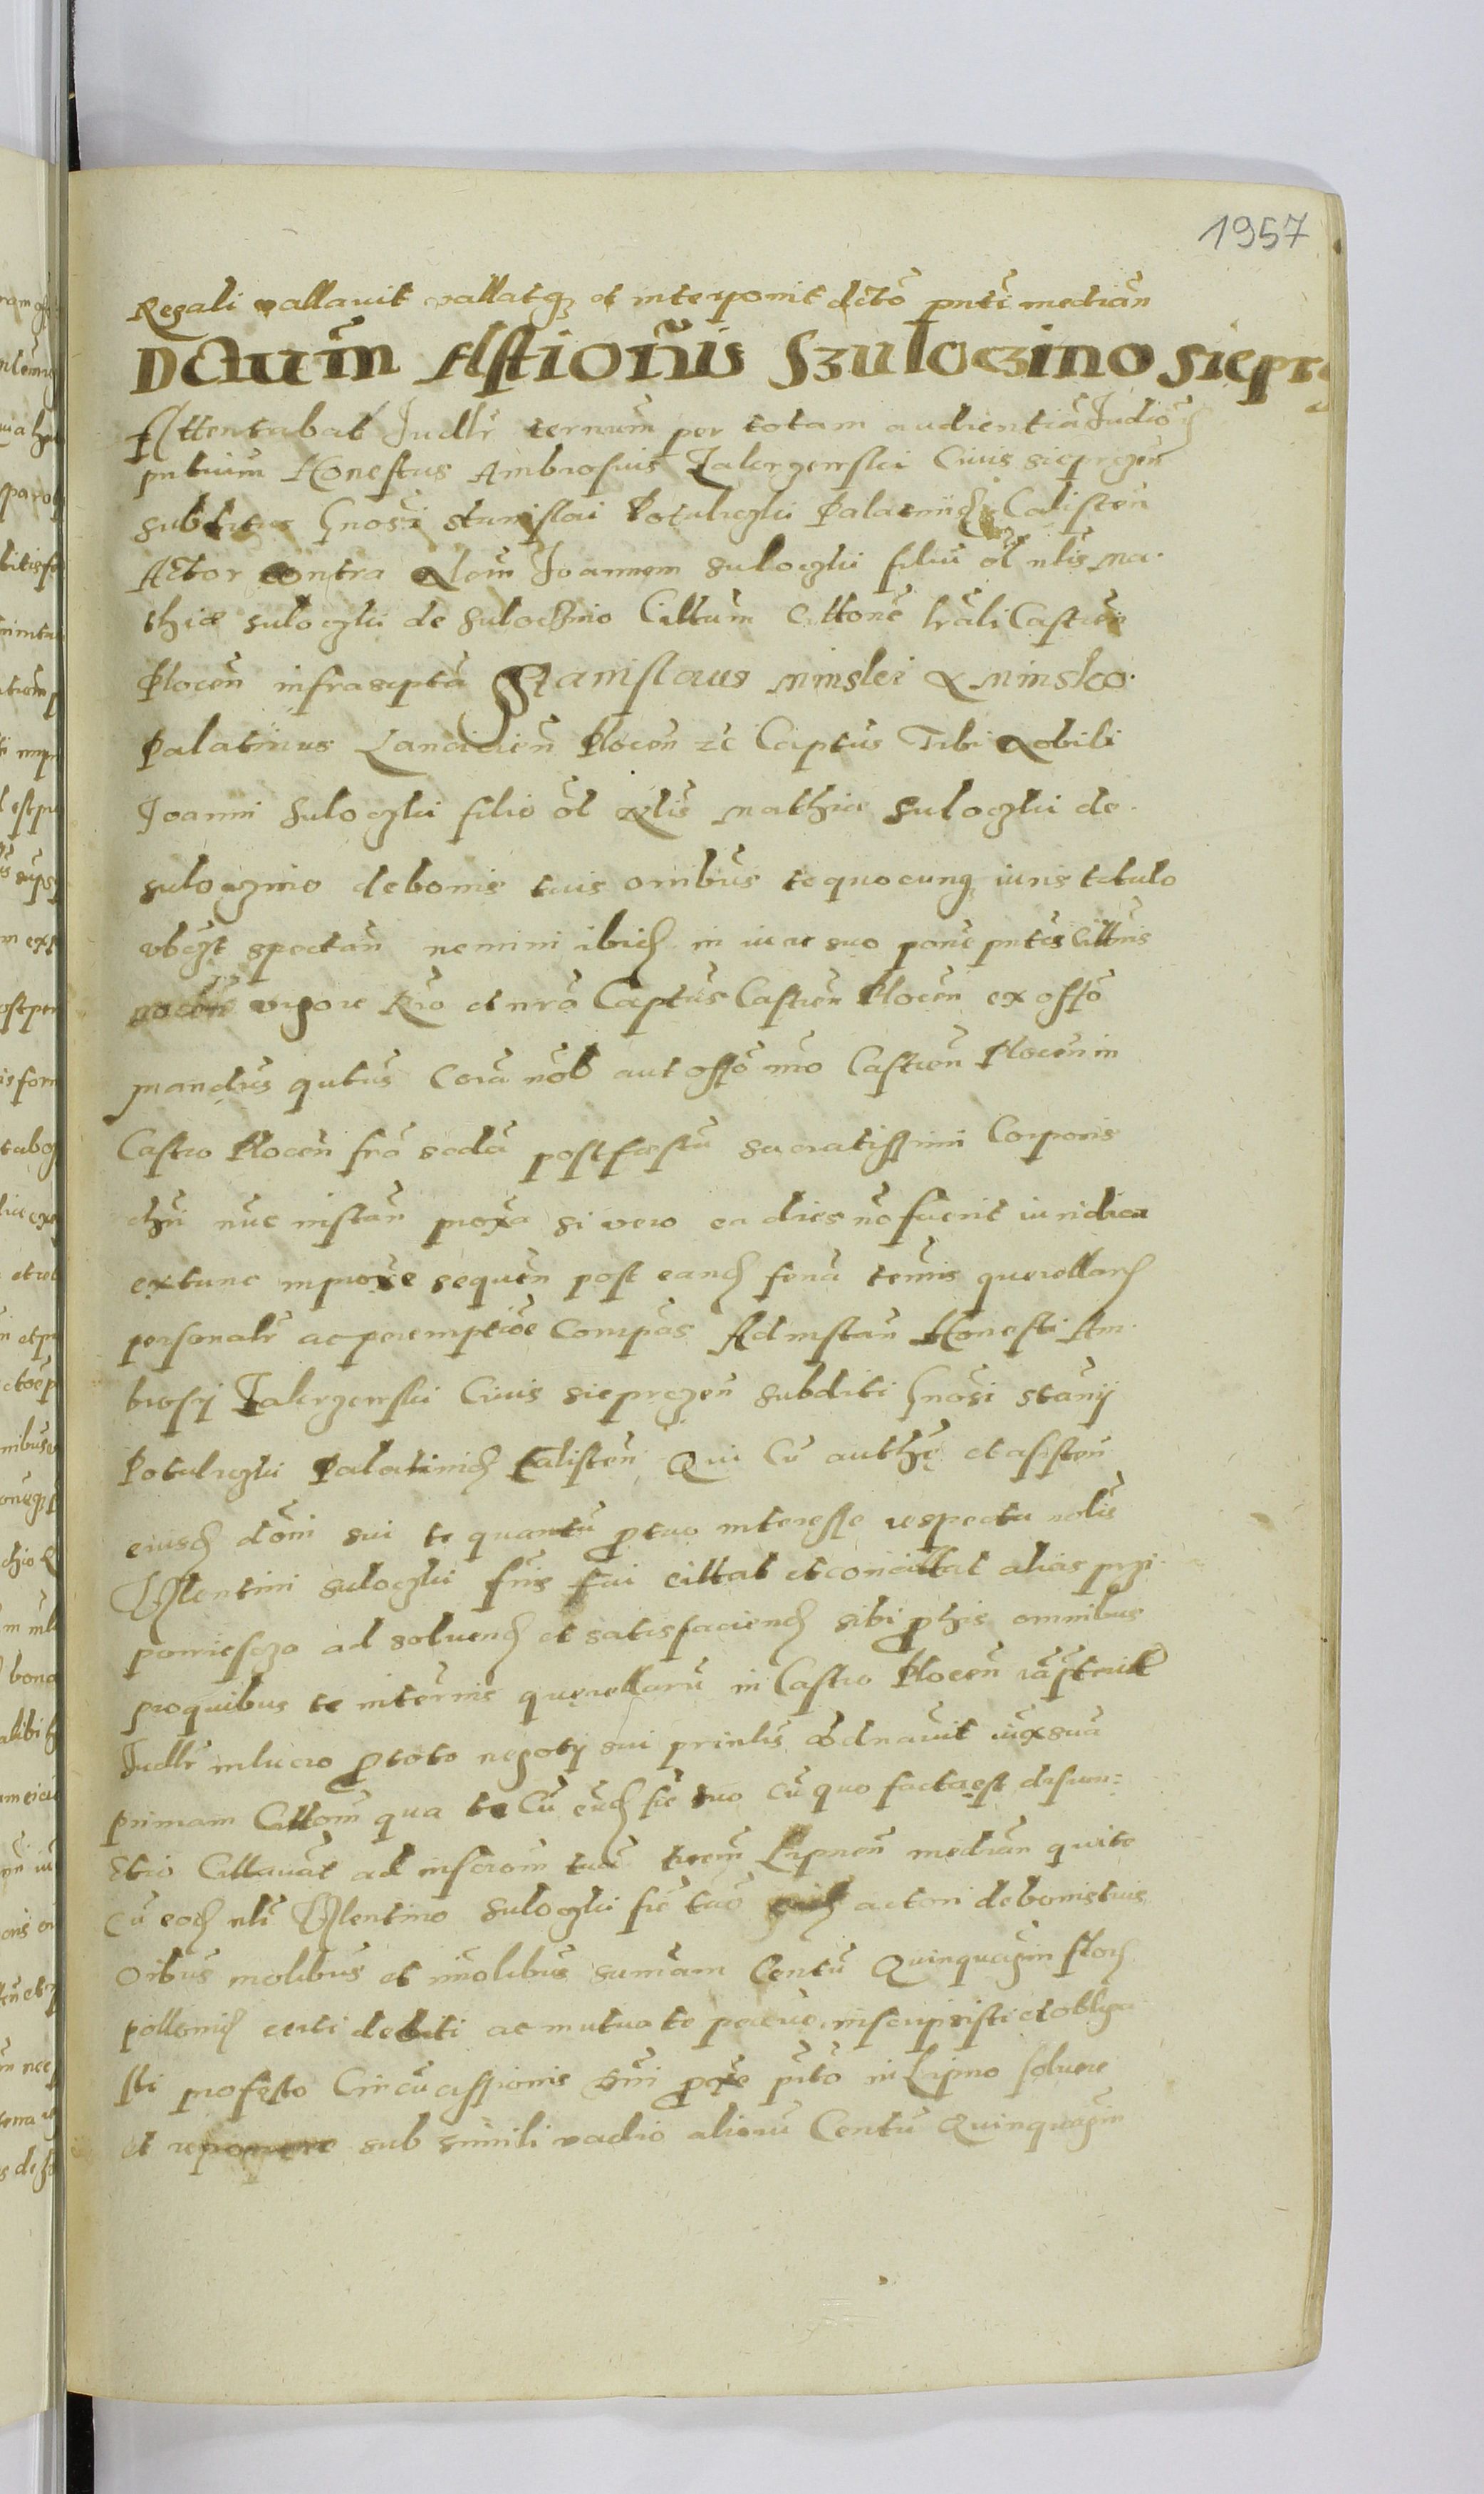 1957
Regali vallavit vallatq et interponit dcto pnti median
Dctum Astionis Szuloczino sieprc
Attentabat Judlr ternum per totam audientia Judior
pntium Honestus Ambrosius Zakrzenski Civis sieprczen
subditus Gnosi stanislai Kotulczki Palatini Calisten
Actor contra Nlem Joannem suloczki filiu ol nlis Ma
thiae suloczki de suloczino Cittum Cittone lrali Castren
Plocen infrascpta Stanislaus Minski de Minsko
Palatinus Lanciccien Plocen zc Captus Tibi Nobili
Joanni suloczki filio ol Nlis Mathiae suloczki de
suloczino de bonis tuis omibus te quocunq iuris titulo
vbcqt spectan nemini ibid in iure suo pone pntes Cittnis
nocen vigore Rio et nro Captus Castren Plocen ex offo
mandus qutus Cora nob aut offo nro Castren Plocen in
Castro Plocen fra scda post festu sacratissimi Corporis
chri nuc instan proxa si vero ea dies no fuerit iuridica
extunc in proxe sequen post eand feria termis querellard
personalr ac peremptoe Compas Ad instan Honesti Am
brosy Zakrzenski Civis sieprczen subditi Gnosi stany
Kotulczki Palatinid Calisten Qui Cu auth et assisten
eiusd doni sui te quantu p tuo interesse respectu nolis
Vlentini suloczki fris tui cittat et concittat alias przi
powiesczo ad soluend et satisfaciend sibi p his omnibus
pro quibus te in termis querellaru in Castro Plocen
Judlr in lucro p toto negoty sui prinlis adnavit iuxsua
primam Cittom qua te Cu eud fre tuo cu quo facta est disiun
ctio Cittavat ad inscrom tua terem Lipnen median qui te
Cu eod nli Vlentino suloczki fre tuo actori de bonis tuis
oibus molibus et imolibus sumam Centu Quinquagin flor
pollonid certi debiti ac mutuo te pecuae inscripsisti et obliga
sti profesto Circucissionis Dni proxe pito in Lipno solvere
et reponere sub simili vadio alioru Centu Quinquagin